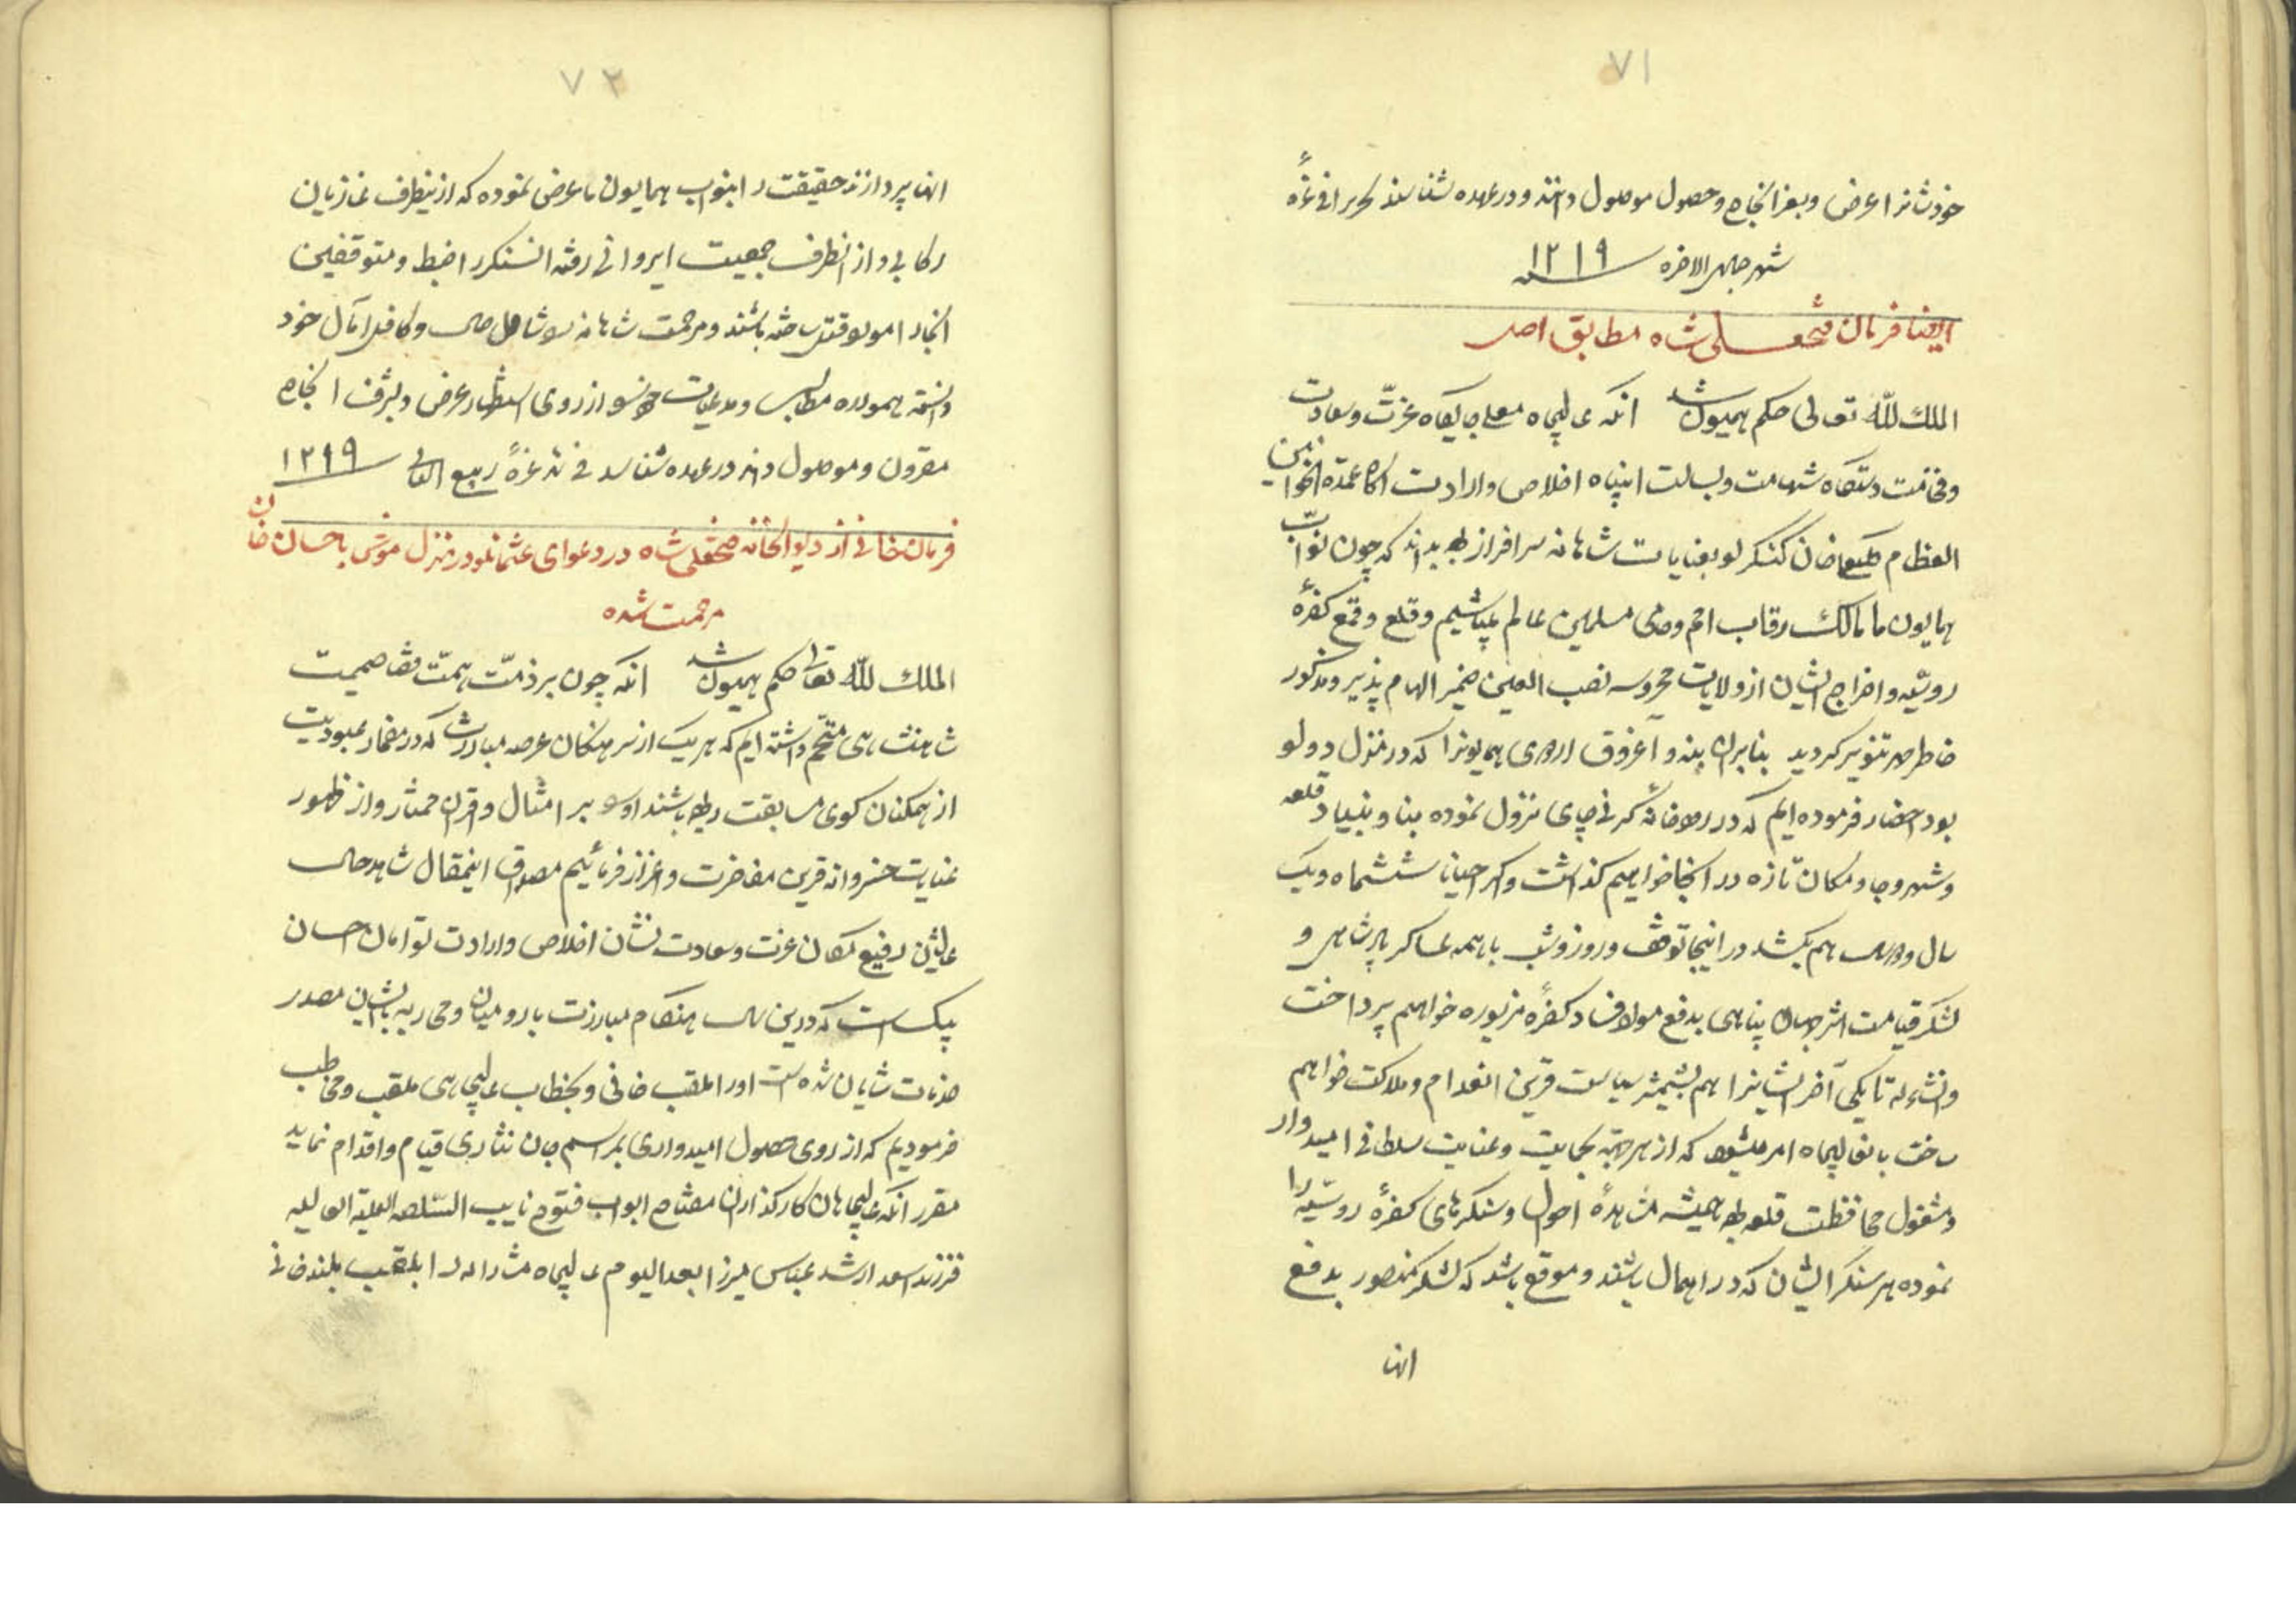 ۷۱
خودشانرا عرض و بعز انجاح و حصول موصول دانند و در عهده شناسند تحریرا فی غرّهٔ
شهر جمادی الاخره سنه ۱۲۱۹
ایضا فرمان فتحعلی شاه مطابق اصل
الملك للّه تعالی حکم همیون شد آنکه عالیجاه معلی جایگاه عزّت و سعادت
و فخامت دستگاه شهامت و بسالت انتباه اخلاص و ارادت آگاه عمدة الخوانین
العظام خان کنگرلو بعنایات شاهانه سرافراز بوده بداند که چون نوّاب
همایون ما مالک رقاب امم و حامی مسلمین عالم میباشیم و قلع و قمع کفرهٔ
روسیّه و اخراج ایشان از ولایات محروسه نصب العین ضمیر الهام پذیر و مذکور
خاطر مهر تنویر گردید بنابران بنه و آغروق اردوی همیونرا که در منزل دولو
بود احضار فرموده ایم که در رودخانه کرنی چای نزول نموده بنا و بنیاد قلعه
و شهر و جا و مکان تازه در انجا خواهیم گذاشت و اگر احیانا ششماه و یک
سال و دو سال هم بکشد در اینجا توقف و روز و شب با همه عساکر پادشاهی و
لشکر قیامت اثر جهان پناهی بدفع مواد فساد کفرهٔ مزبوره خواهیم پرداخت
و انشاءالله تا یکی آخر ایشانرا هم بشمشیر سیاست قرین انعدام و هلاکت خواهیم
ساخت بانعالیجاه امر میشود که از هر جهة بحمایت و عنایت سلطانی امیدوار
و مشغول محافظت قلعه بوده همیشه مشاهدهٔ احوال و سنگرهای کفرهٔ روسیّه را
نموده هر سنگر ایشان که در اهمال باشند و موقع باشد که لشکر منصور بدفع
انها
۷۲
انها پردازند حقیقت را بنواب همایون ما عرض نموده که از اینطرف غازیان
رکابی و از انطرف جمعیت ایروانی رفته ان سنگر را ضبط و متوقفین
انجا را مورد قتل ساخته باشند و مرحمت شاهانه را شامل حال و کافل آمال خود
دانسته همواره مطالب و مدعیات خود را از روی استظهار عرض و بشرف انجاح
مقرون و موصول دانند در عهده شناسند فی غرهٔ ربیع الثانی ۱۲۱۹
فرمان خانی از دیوانخانه فتحعلی شاه در دعوای عثمانلو در منزل موش باحسان خان
مرحمت شده
الملك للّه تعالی حکم همیون شد آنکه چون بر ذمّت همّت قضا صمیمیت
شاهنشاهی متحتّم داشته ایم که هر یک از سرهنگان عرصه مبادرت که در مضمار عبودیت
از همکنان گوی مسابقت ربوده باشند او را بر امثال و اقران ممتاز و از ظهور
عنایت خسروانه قرین مفاخرت و اعزاز فرمائیم مصداق اینمقال شاهد حال
عالیشان رفیع مکان عزت و سعادت نشان اخلاص و ارادت توامان احسان
بیک است که درین سال هنگام مبارزت با رومیان و محاربه بایشان مصدر
خدمات شایان شده است او را بلقب خانی و بخطاب عالیجاهی ملقب و مخاطب
فرمودیم که از روی حصول امیدواری بمراسم جان نثاری قیام و اقدام نماید
مقرر آنکه عالیجاهان کارگذاران مفتاح ابواب فتوح نایب السّلطنه العلیّه العالیه
فرزند اسعد ارشد عباس میرزا بعد الیوم عالیجاه مشار الیه را بلقب بلند خانی